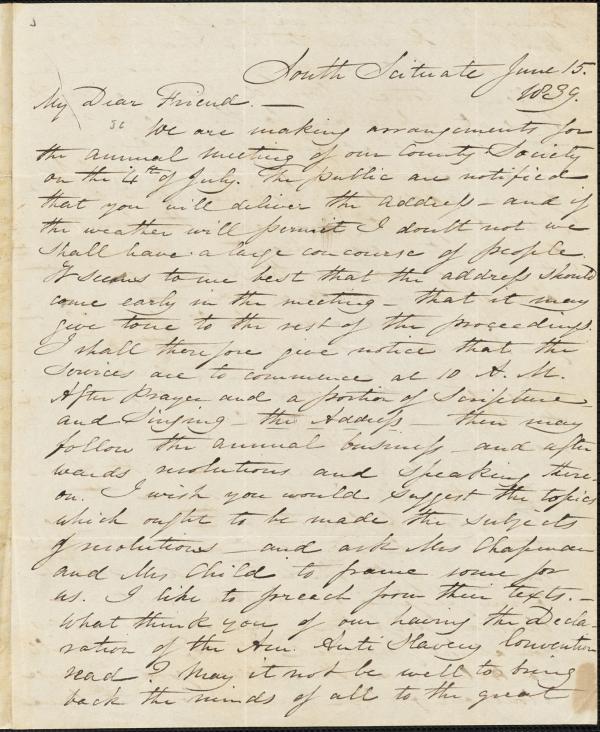 South Scituate June 15.
1839.
My Dear Friend. —
We are making arrangements for
the annual meeting of our County Society
on the 4th of July. The public are notified
that you will deliver the address — and if
the weather will permit I doubt not we
shall have a large concourse of people.
It seems to me best that the address should
come early in the meeting — that it may
give tone to the rest of the proceedings.
I shall therefore give notice that the
Services are to commence at 10 A. M.
After Prayer and a portion of Scripture
and Singing — the Address — then may
follow the annual business — and after
wards resolutions and speaking there-
on. I wish you would suggest the topics
which ought to be made the subjects
of resolutions — and ask Mrs Chapman
and Mrs Child to frame some for
us. I like to preach from their texts. —
What think you of our having the Decla-
ration of the Am. Anti Slavery Convention
read? May it not be well to bring
back the minds of all to the great